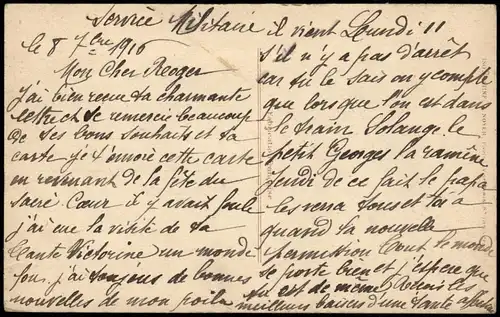 Service Militaire
le 8 7bre 1916
Mon Cher Reoger
J'ai bien recue ta charmante
lettre et te remercie beaucoup
de tes bons souhaits et ta
carte je t'envoie cette carte
en revenant de la fête du
Sacré Cœur il y avait foule
j'ai eue la visite de ta
Tante Victorine un monde
fou. j'ai toujours de bonnes
nouvelles de mon poilu
il vient Lundi 11
s'il n'y a pas d'arrêt
car tu le sais on y compte
que lorsque l'on est dans
le train Solange. le
petit Georges la ramène
Jeudi de ce fait le papa
les verra tous et toi a
quand la nouvelle
permission tout le monde
se porte bien et j'espère que
tu est de même Reçois les
meilleurs baisers d'une tante